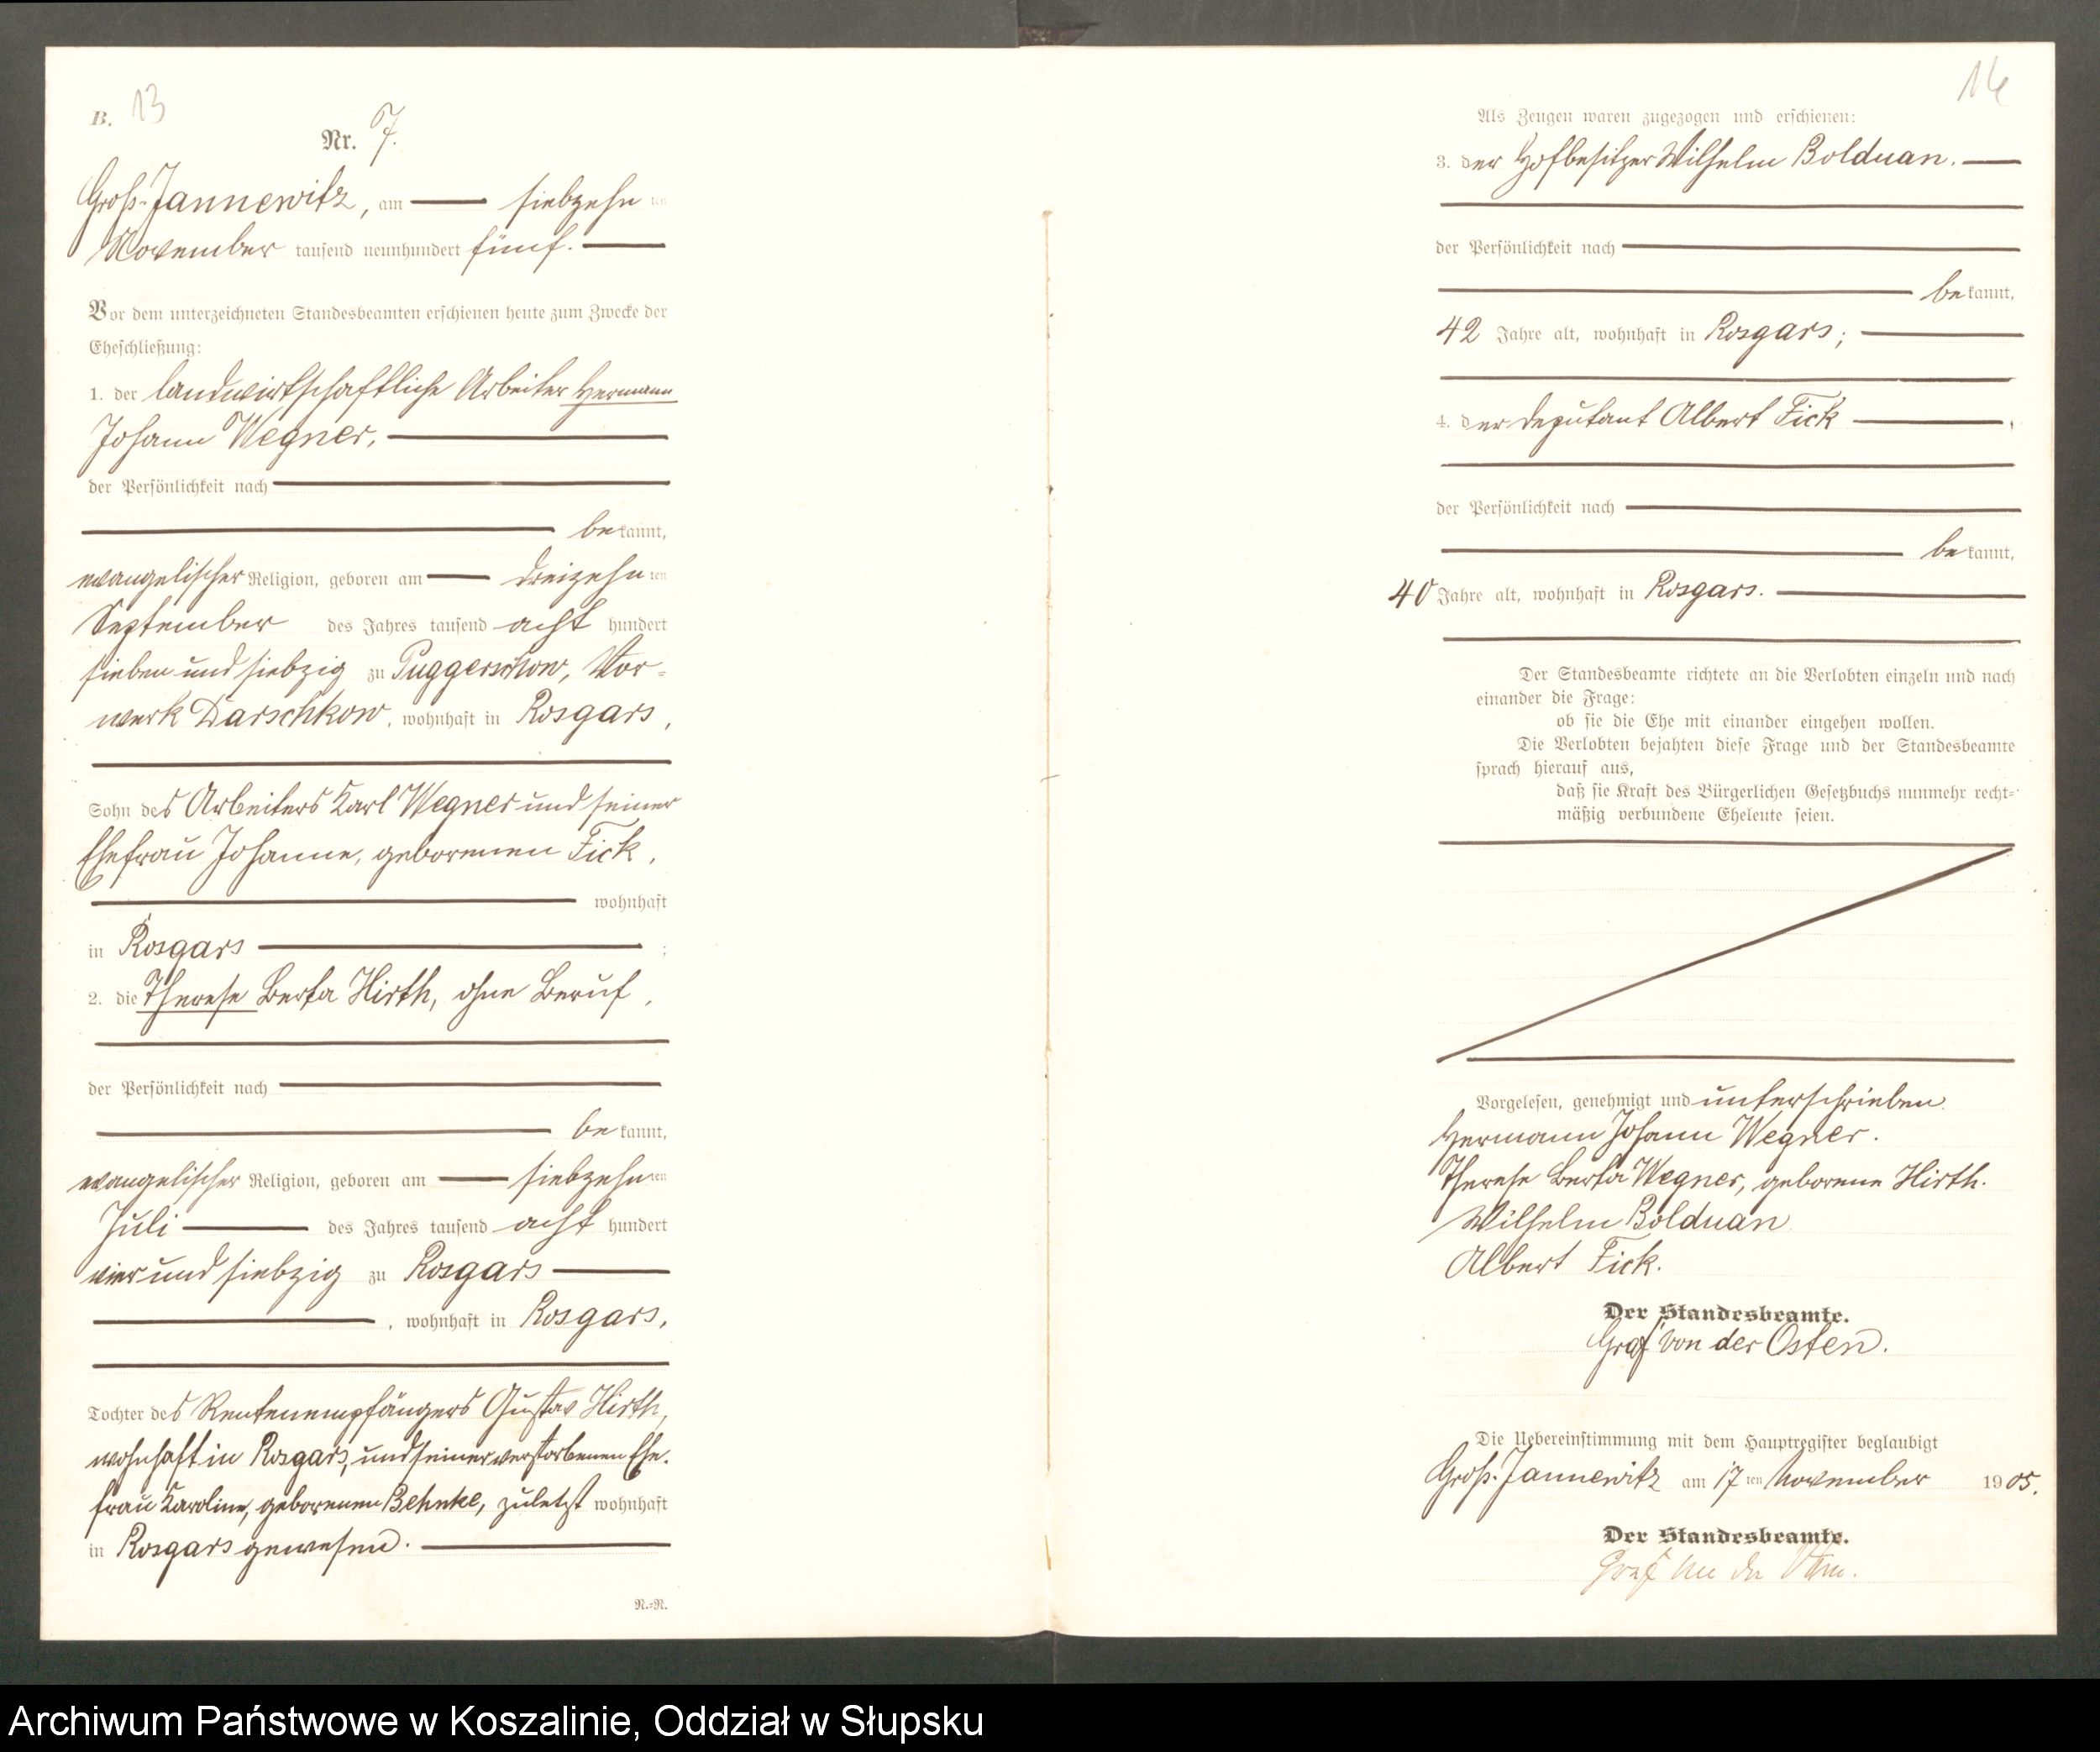 B. 13
Nr. 7.
Groß-Jannewitz, am siebzehn ten
November tausend neunhundert fünf.
Vor dem unterzeichneten Standesbeamten erschienen heute zum Zwecke der
Eheschließung:
1. der landwirtschaftliche Arbeiter Hermann
Johann Wegner,
der Persönlichkeit nach
bekannt,
evangelischer Religion, geboren am dreizehn ten
September des Jahres tausend acht hundert
sieben und siebzig zu Puggerschow, Vor-
werk Darschkow, wohnhaft in Rosgars,
Sohn des Arbeiters Karl Wegner und seiner
Ehefrau Johanne, geborenen Fick,
wohnhaft
in Rosgars ;
2. die Therese Berta Hirth, ohne Beruf,
der Persönlichkeit nach
bekannt,
evangelischer Religion, geboren am siebzehn ten
Juli des Jahres tausend acht hundert
vier und siebzig zu Rosgars
, wohnhaft in Rosgars,
Tochter des Rentenempfängers Gustav Hirth,
wohnhaft in Rosgars, und seiner verstorbenen Ehe-
frau Karoline, geborenen Behnke, zuletzt wohnhaft
in Rosgars gewesen.
R.-R.
14
Als Zeugen waren zugezogen und erschienen:
3. der Hofbesitzer Wilhelm Bolduan.
der Persönlichkeit nach
bekannt,
42 Jahre alt, wohnhaft in Rosgars;
4. der Deputant Albert Fick ,
der Persönlichkeit nach
bekannt,
40 Jahre alt, wohnhaft in Rosgars.
Der Standesbeamte richtete an die Verlobten einzeln und nach
einander die Frage:
ob sie die Ehe mit einander eingehen wollen.
Die Verlobten bejahten diese Frage und der Standesbeamte
sprach hierauf aus,
daß sie Kraft des Bürgerlichen Gesetzbuchs nunmehr recht-
mäßig verbundene Eheleute seien.
Vorgelesen, genehmigt und unterschrieben.
Hermann Johann Wegner.
Therese Berta Wegner, geborene Hirth.
Wilhelm Bolduan
Albert Fick.
Der Standesbeamte.
Graf von der Osten.
Die Uebereinstimmung mit dem Hauptregister beglaubigt
Groß-Jannewitz am 17 ten November 1905.
Der Standesbeamte.
Graf von der Osten.
Archiwum Państwowe w Koszalinie, Oddział w Słupsku